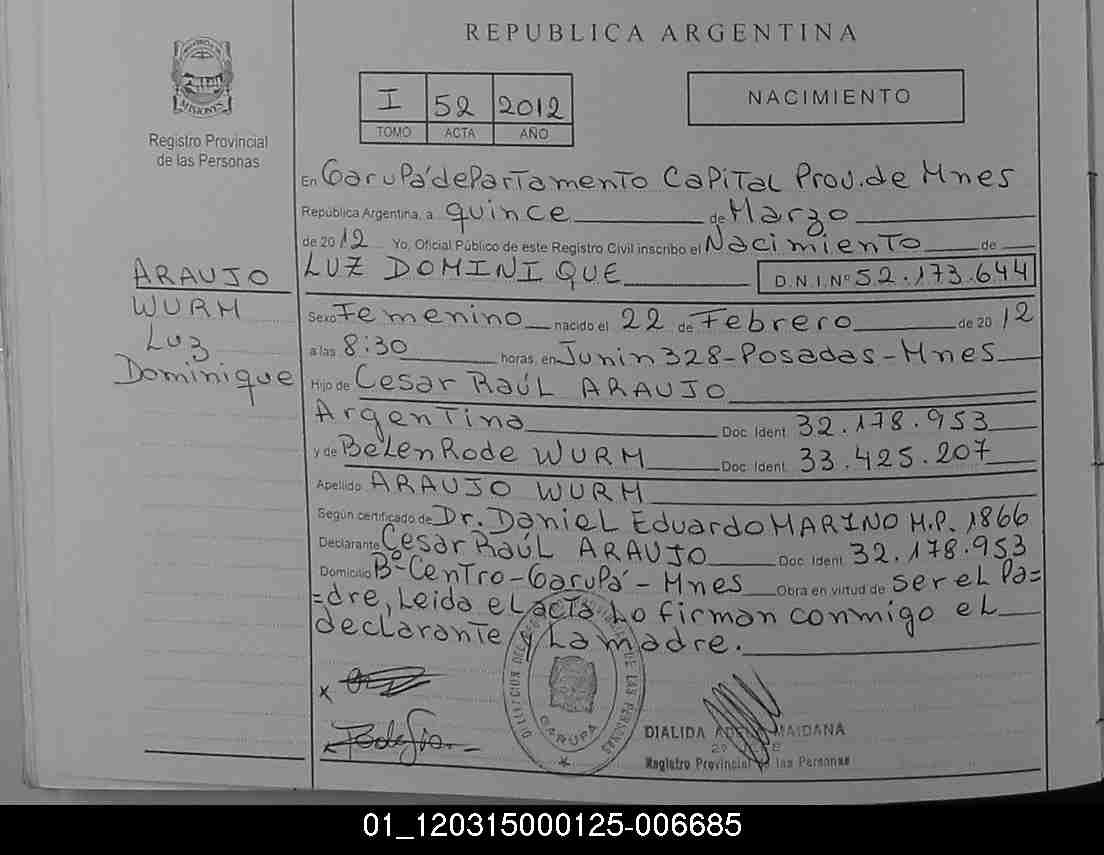 REPUBLICA ARGENTINA
PROVINCIA DE
MISIONES
Registro Provincial
de las Personas
I 52 2012
TOMO ACTA AÑO
NACIMIENTO
En Garupá departamento Capital Prov. de Mnes
República Argentina, a quince de Marzo
de 2012 Yo, Oficial Público de este Registro Civil inscribo el Nacimiento de
LUZ DOMINIQUE D.N.I.Nº 52.173.644
ARAUJO
WURM
Luz
Dominique
Sexo Femenino nacido el 22 de Febrero de 2012
a las 8:30 horas, en Junin 328-Posadas-Mnes
Hijo de Cesar Raúl ARAUJO
Argentina Doc. Ident. 32.178.953
y de Belen Rode WURM Doc. Ident. 33.425.207
Apellido ARAUJO WURM
Según certificado de Dr. Daniel Eduardo MARINO M.P. 1866
Declarante Cesar Raúl ARAUJO Doc. Ident. 32.178.953
Domicilio Bº Centro-Garupá-Mnes Obra en virtud de ser el Pa=
=dre, Leida el acta Lo firman conmigo el
declarante y La madre.
x
DE LAS PERSONAS
GARUPA
DIALIDA MAIDANA
Registro Provincial de las Personas
01_120315000125-006685